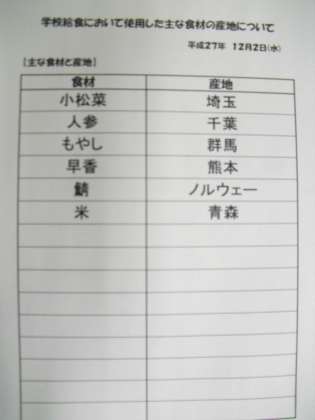 学校給食において使用した主な食材の産地について
平成27年 12月2日(水)
[主な食材と産地]
食材 産地
小松菜 埼玉
人参 千葉
もやし 群馬
早香 熊本
鯖 ノルウェー
米 青森